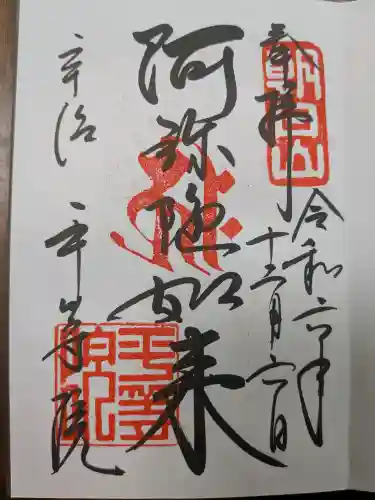 奉拝
朝日山
令和六年
十二月六日
阿弥陀如来
宇治 平等院
平等院